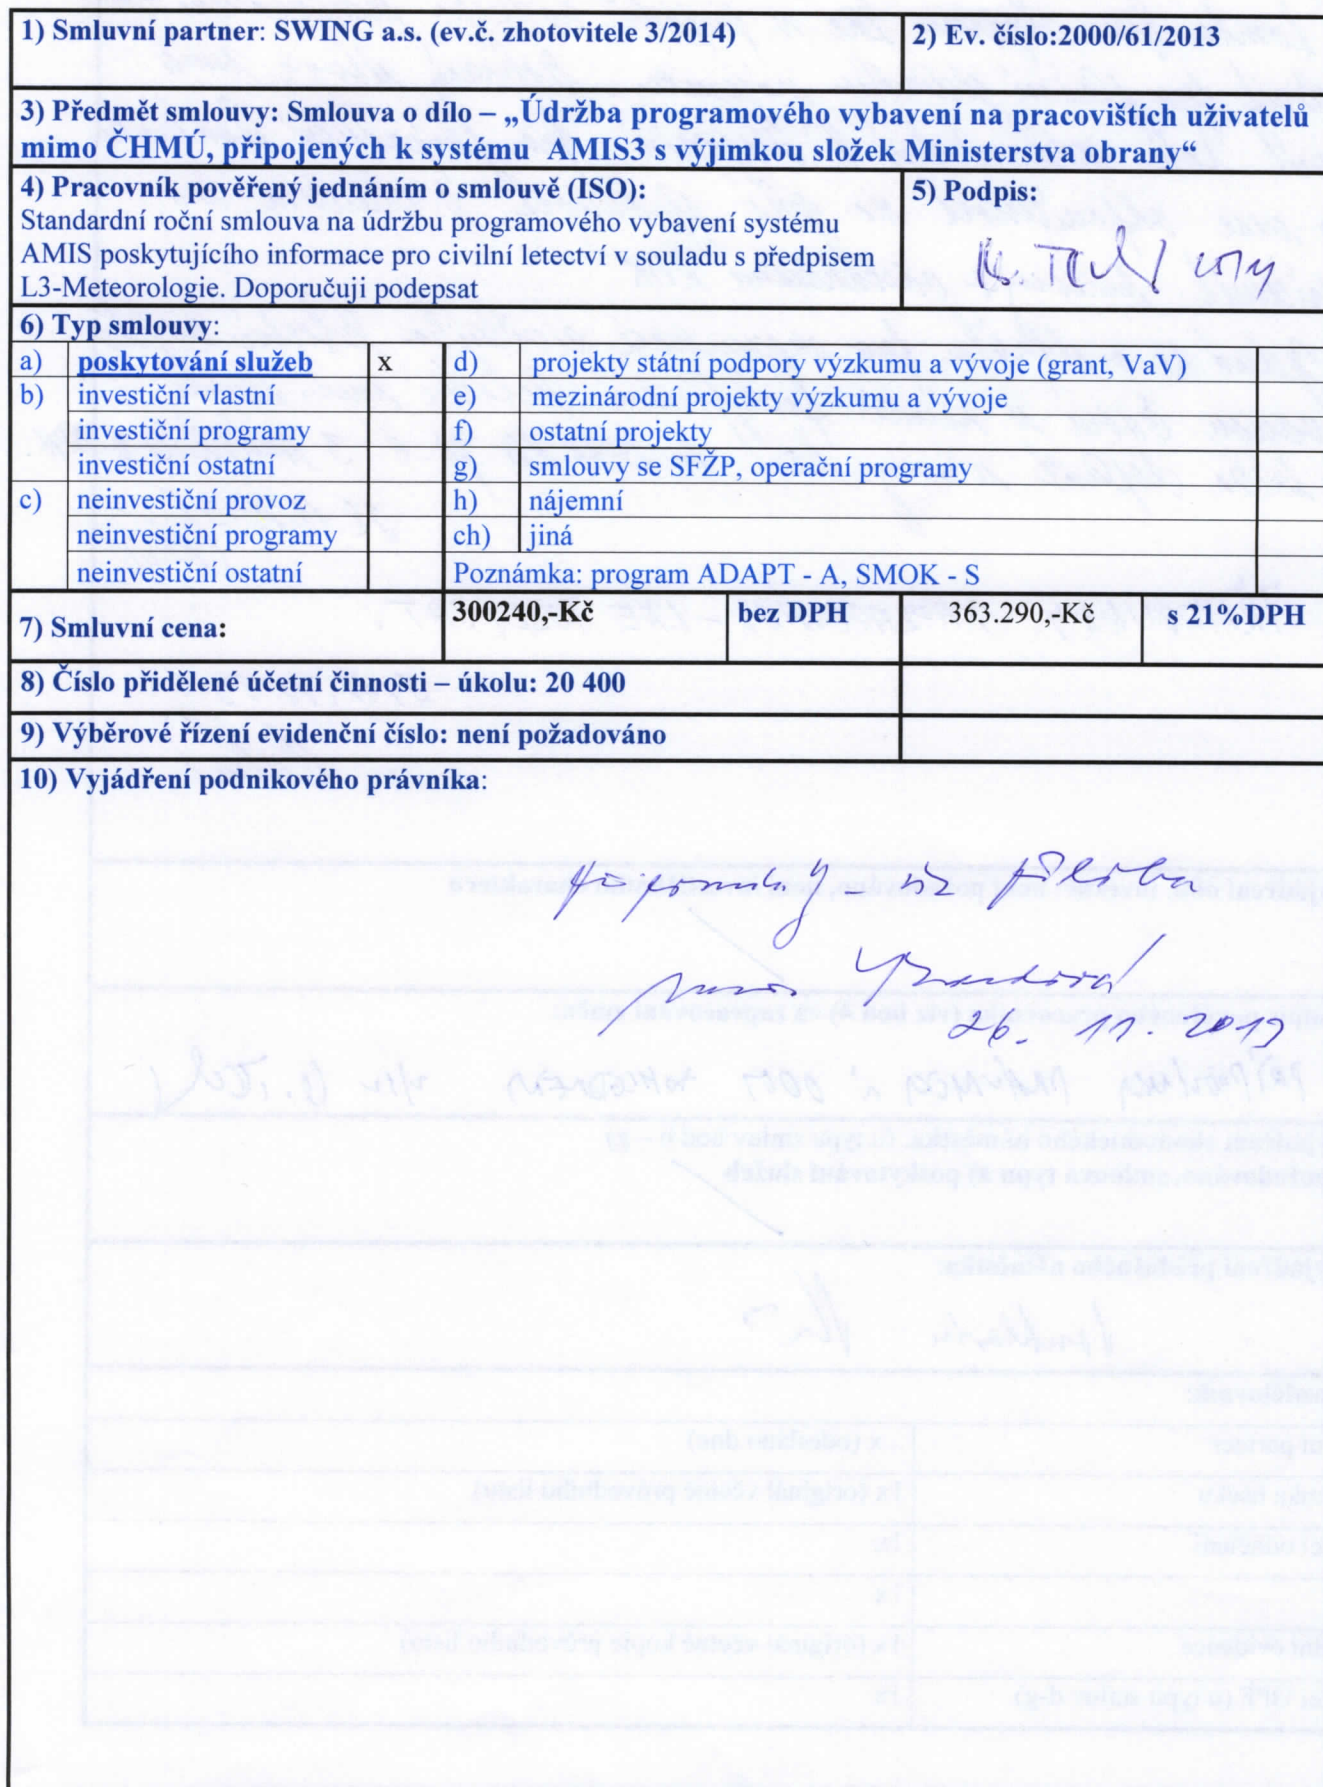 1) Smluvní partner: SWING a.s. (ev.č. zhotovitele 3/2014)
2) Ev. číslo:2000/61/2013
3) Předmět smlouvy: Smlouva o dílo – „Údržba programového vybavení na pracovištích uživatelů
mimo ČHMÚ, připojených k systému AMIS3 s výjimkou složek Ministerstva obrany“
4) Pracovník pověřený jednáním o smlouvě (ISO):
Standardní roční smlouva na údržbu programového vybavení systému
AMIS poskytujícího informace pro civilní letectví v souladu s předpisem
L3-Meteorologie. Doporučuji podepsat
5) Podpis:
6) Typ smlouvy:
a) poskytování služeb x d) projekty státní podpory výzkumu a vývoje (grant, VaV)
b) investiční vlastní e) mezinárodní projekty výzkumu a vývoje
investiční programy f) ostatní projekty
investiční ostatní g) smlouvy se SFŽP, operační programy
c) neinvestiční provoz h) nájemní
neinvestiční programy ch) jiná
neinvestiční ostatní Poznámka: program ADAPT - A, SMOK - S
7) Smluvní cena: 300240,-Kč bez DPH 363.290,-Kč s 21%DPH
8) Číslo přidělené účetní činnosti – úkolu: 20 400
9) Výběrové řízení evidenční číslo: není požadováno
10) Vyjádření podnikového právníka:
26. 11. 2013